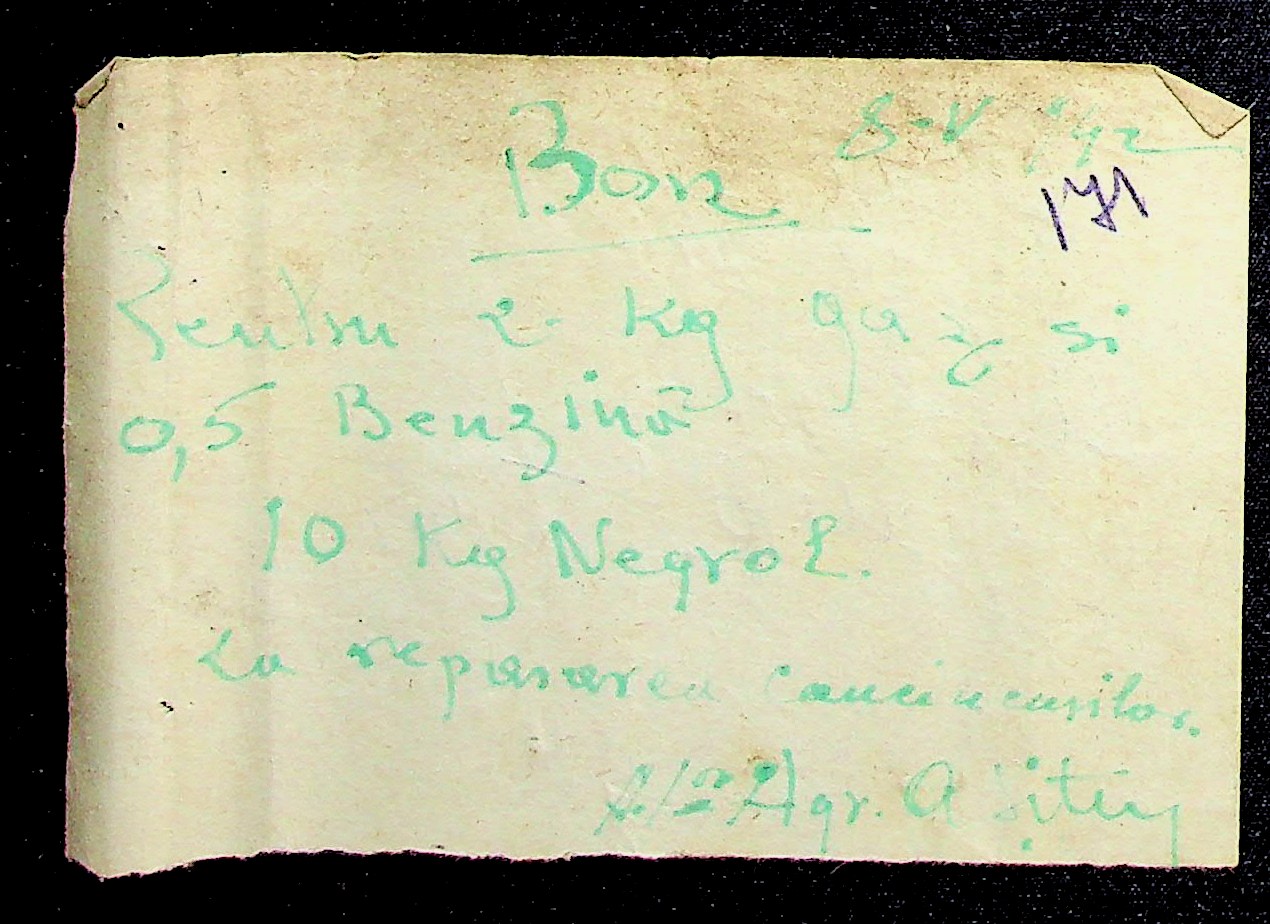 8-V 942
Bon
171
Pentru 2 Kg gaz si
0,5 Benzină
10 Kg Negrol.
La repasarea cauciucurilor.
Agr. A